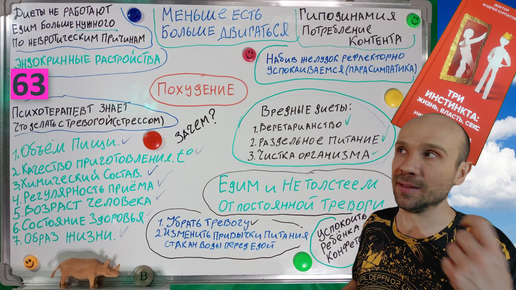 Диеты не работают
Едим больше нужного
По невротическим причинам
Эндокринные расстройства
Меньше есть
Больше двигаться
Гиподинамия
Потребление
Контента
Набив желудок рефлекторно
успокаиваемся (парасимпатика)
63
Похудение
Психотерапевт знает
Что делать с тревогой (стрессом)
Зачем?
1. Объём пищи.
2. Качество приготовления. t°
3. Химический состав.
4. Регулярность приёма
5. Возраст человека
6. Состояние здоровья
7. Образ жизни.
Вредные диеты:
1. Вегетарианство
2. Раздельное питание
3. Чистка организма
Едим и не толстеем
От постоянной тревоги
1. Убрать тревогу
2. Изменить привычки питания
стакан воды перед едой
Успокоить
Ребёнка
Конфетой
Доктор
Андрей Курпатов
ТРИ
ИНСТИНКТА:
ЖИЗНЬ, ВЛАСТЬ, СЕКС